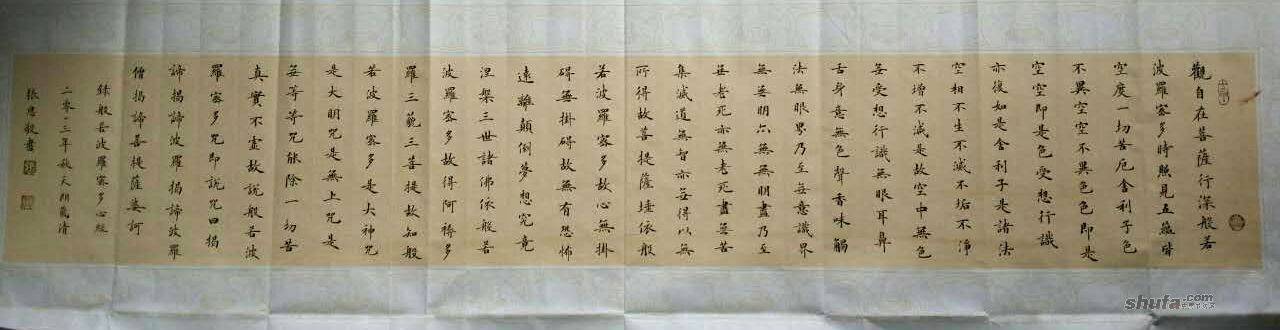 觀自在菩薩行深般若
波羅蜜多時照見五蘊皆
空度一切苦厄舍利子色
不異空空不異色色即是
空空即是色受想行識
亦復如是舍利子是諸法
空相不生不滅不垢不淨
不增不減是故空中無色
無受想行識無眼耳鼻
舌身意無色聲香味觸
法無眼界乃至無意識界
無無明亦無無明盡乃至
無老死亦無老死盡無苦
集滅道無智亦無得以無
所得故菩提薩埵依般
若波羅蜜多故心無掛
碍無掛碍故無有恐怖
遠離顛倒夢想究竟
涅槃三世諸佛依般若
波羅蜜多故得阿耨多
羅三藐三菩提故知般
若波羅蜜多是大神咒
是大明咒是無上咒是
無等等咒能除一切苦
真實不虛故說般若波
羅蜜多咒即說咒曰揭
諦揭諦波羅揭諦波羅
僧揭諦菩提薩婆訶
錄般若波羅蜜多心經
二零一三年秋天朗氣清
張敬書
shufa.com